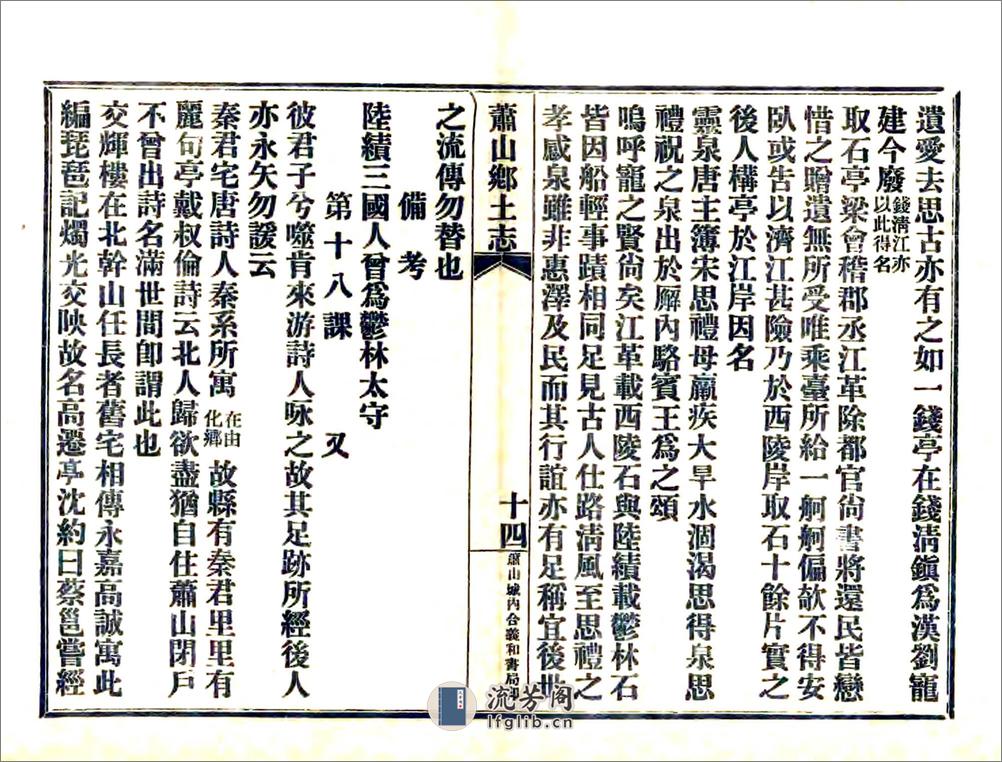 遺愛去思古亦有之如一錢亭在錢淸鎭爲漢劉寵
建今廢錢淸江亦以此得名
取石亭梁會稽郡丞江革除都官尙書將還民皆戀
惜之贈遺無所受唯乘臺所給一舸舸偏欹不得安
臥或吿以濟江甚險乃於西陵岸取石十餘片實之
後人構亭於江岸因名
靈泉唐主簿宋思禮母羸疾大旱水涸渴思得泉思
禮祝之泉出於廨內駱賓王爲之頌
嗚呼寵之賢尙矣江革載西陵石與陸績載鬱林石
皆因船輕事蹟相同足見古人仕路淸風至思禮之
孝感泉雖非惠澤及民而其行誼亦有足稱宜後世
蕭山鄕土志
十四
蕭山城內合義和書局印
之流傳勿替也
備考
陸績三國人曾爲鬱林太守
第十八課 又
彼君子兮噬肯來游詩人咏之故其足跡所經後人
亦永矢勿諼云
秦君宅唐詩人秦系所寓在由化鄕故縣有秦君里里有
麗句亭戴叔倫詩云北人歸欲盡猶自住蕭山閉戶
不曾出詩名滿世間卽謂此也
交輝樓在北幹山任長者舊宅相傳永嘉高誠寓此
編琵琶記燭光交映故名高遷亭沈約曰蔡邕嘗經
流芳阁
lfglib.cn